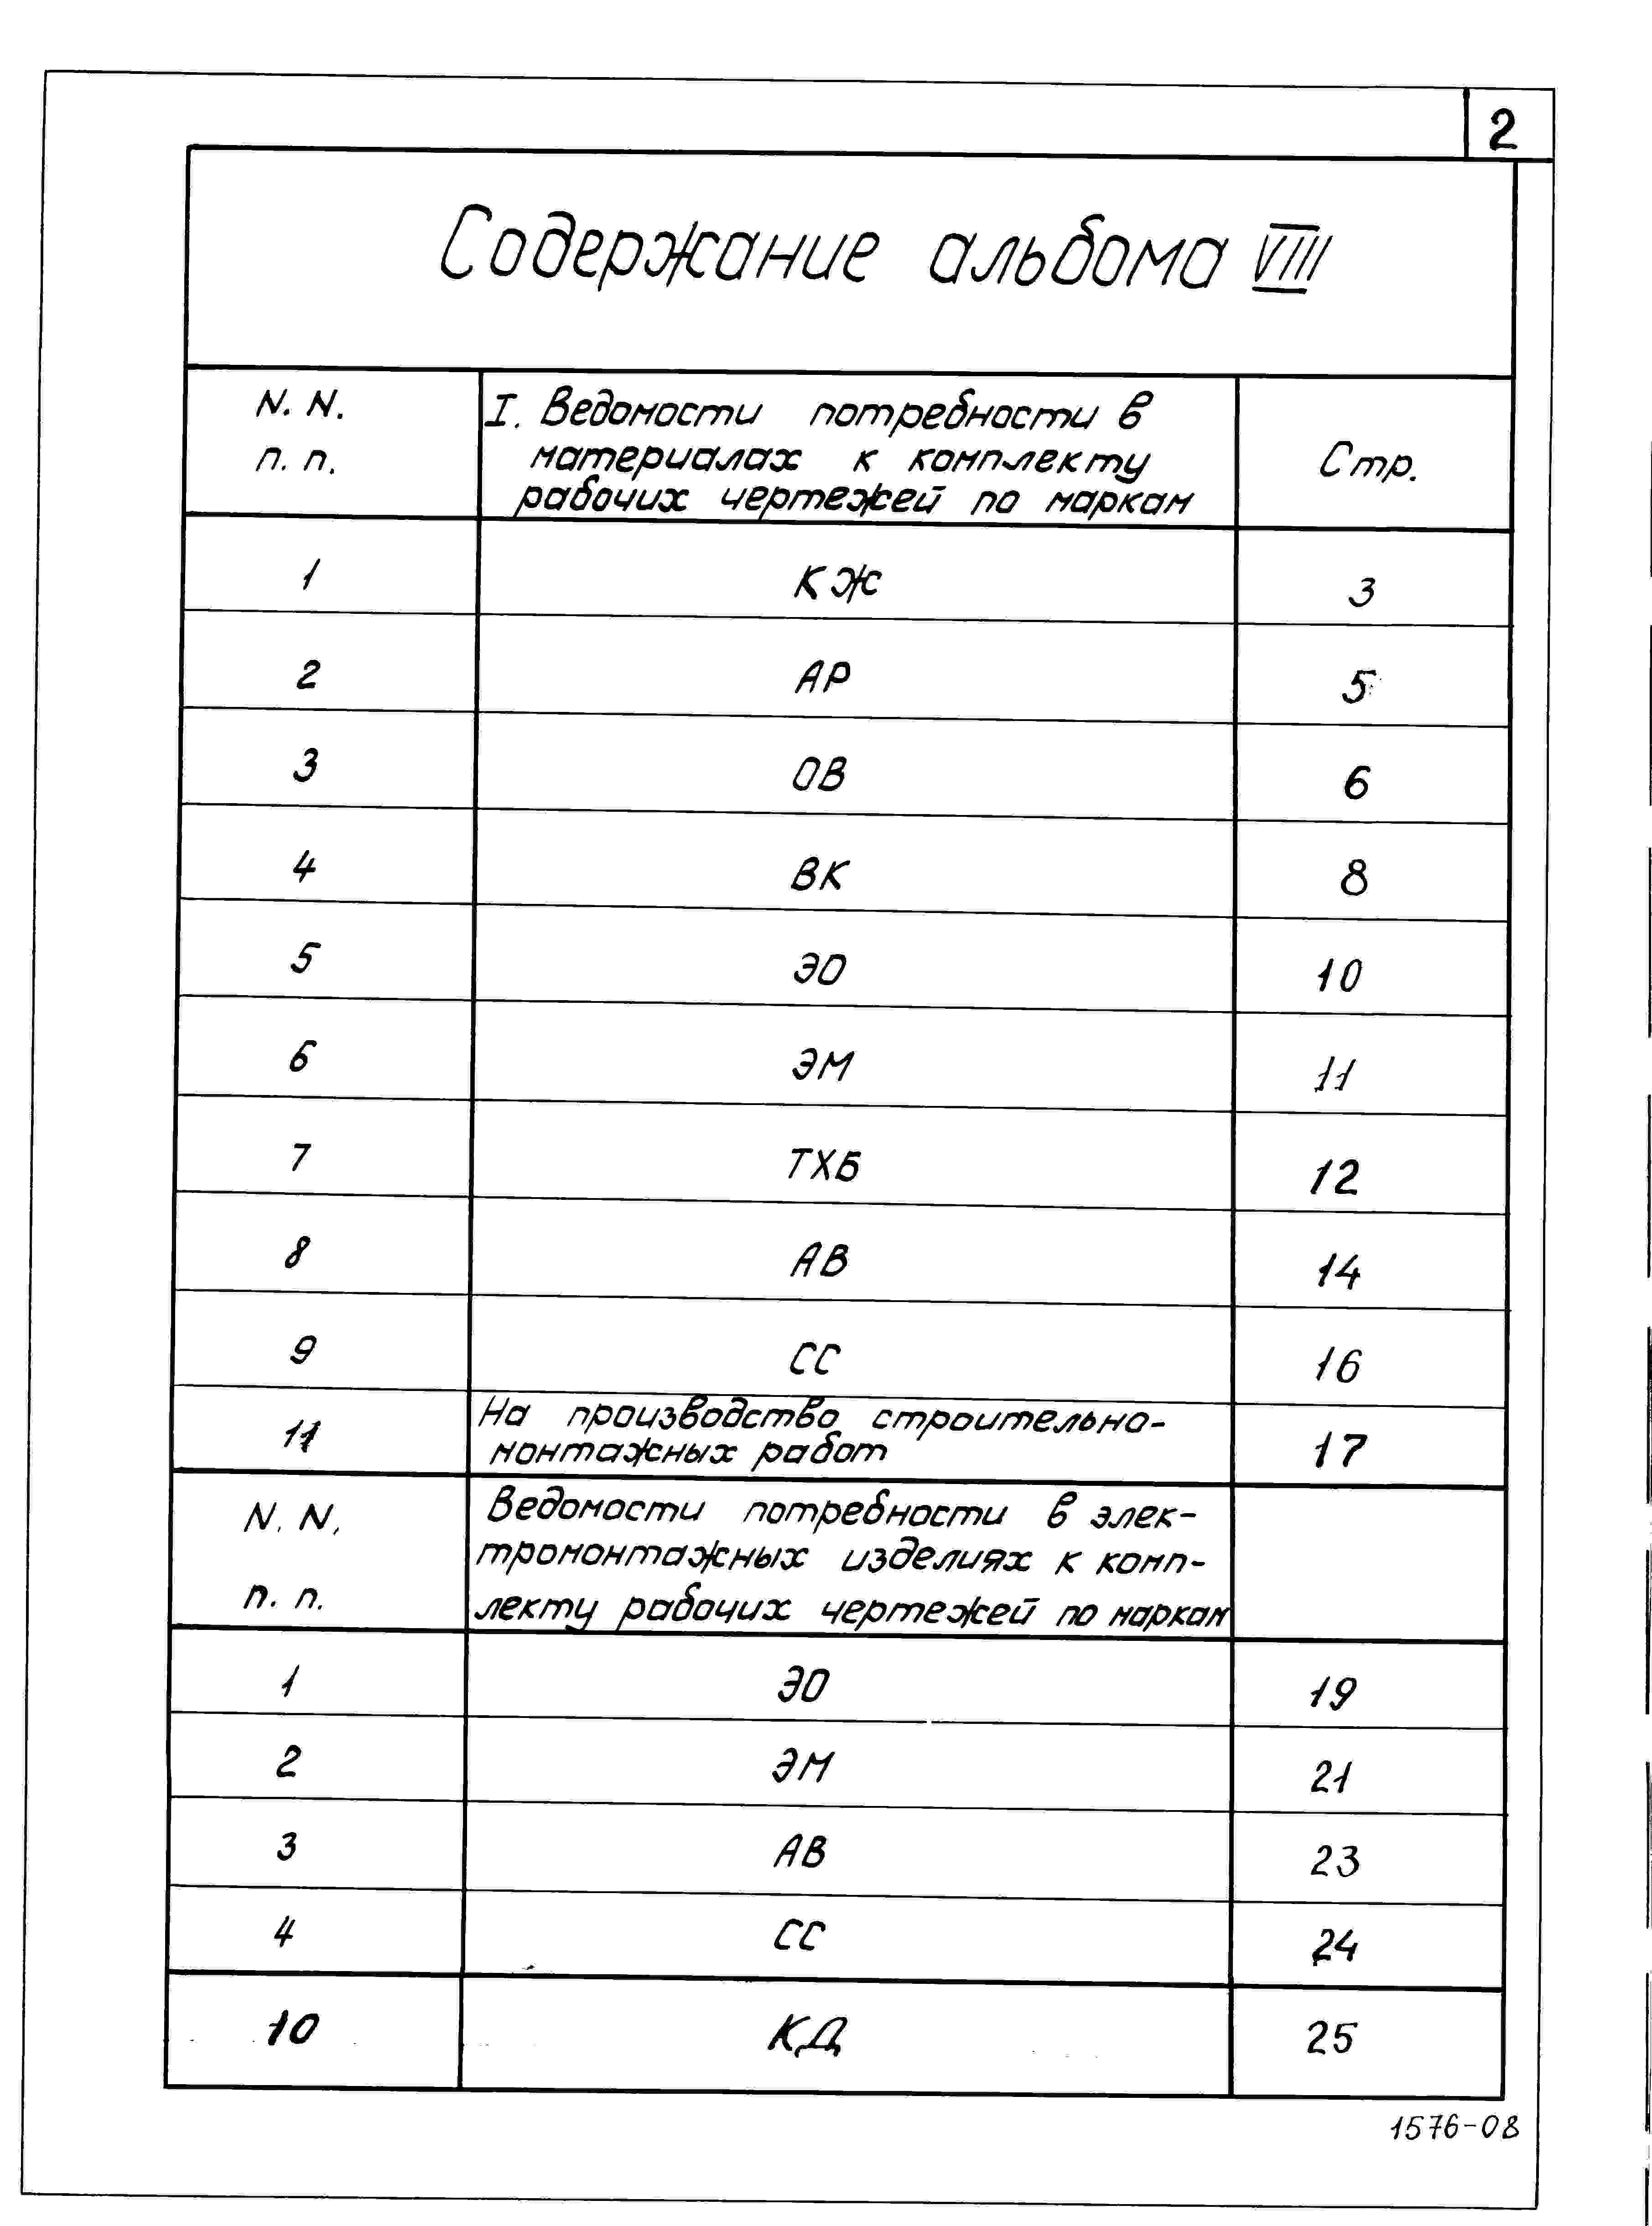 2
Содержание альбома VIII
N. N.
п. п.
I. Ведомости потребности в
материалах к комплекту
рабочих чертежей по маркам
Стр.
1 КЖ 3
2 АР 5
3 ОВ 6
4 ВК 8
5 ЭО 10
6 ЭМ 11
7 ТХБ 12
8 АВ 14
9 СС 16
11 На производство строительно-
монтажных работ 17
N. N.
п. п.
Ведомости потребности в элек-
тромонтажных изделиях к комп-
лекту рабочих чертежей по маркам
1 ЭО 19
2 ЭМ 21
3 АВ 23
4 СС 24
10 КД 25
1576-08